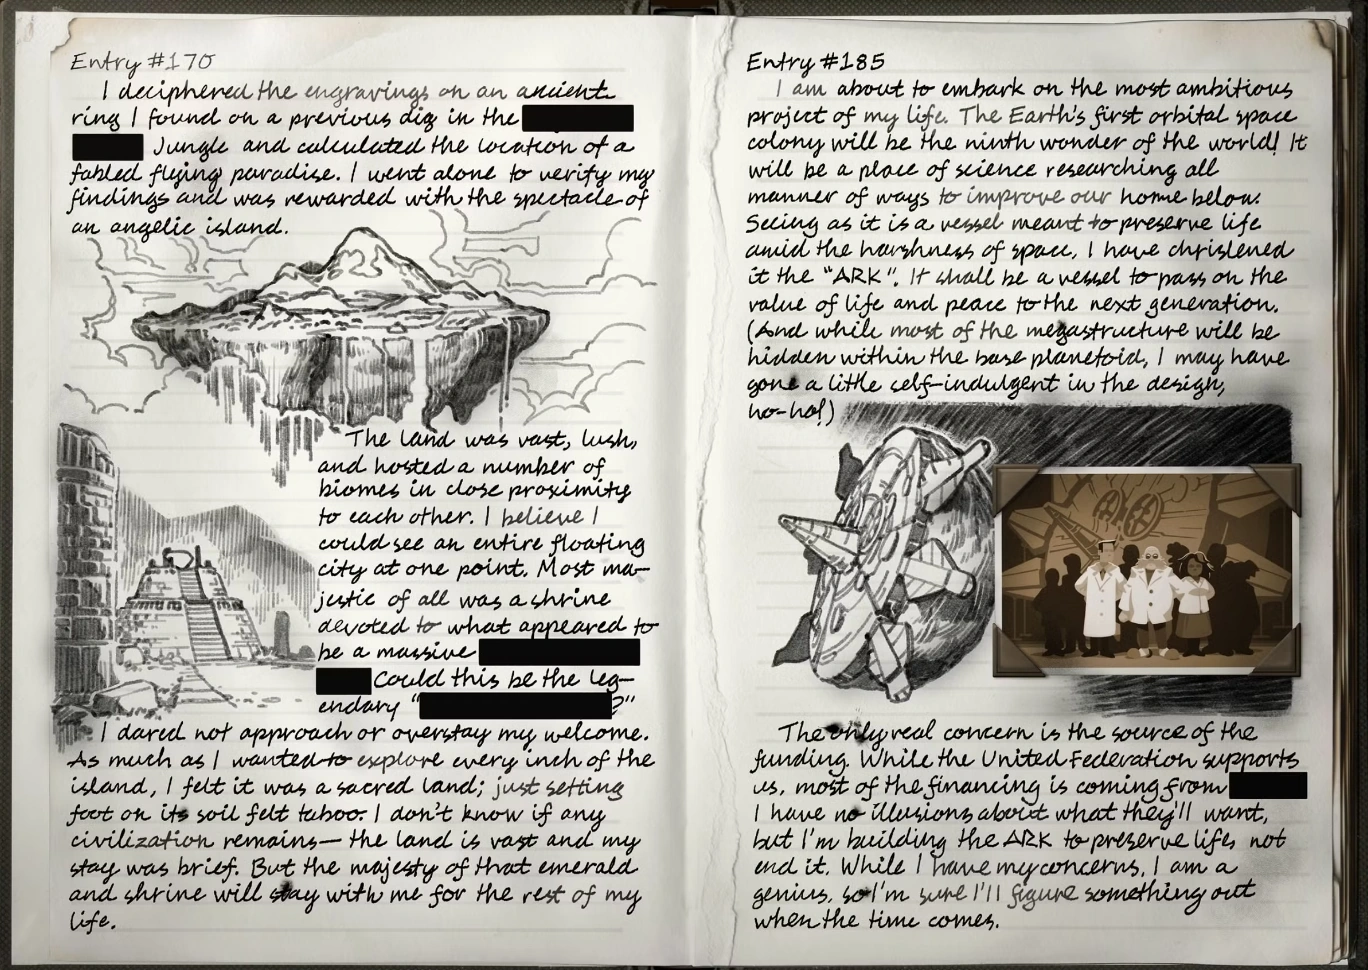 Entry #170
I deciphered the engravings on an ancient
ring I found on a previous dig in the
Jungle and calculated the location of a
fabled flying paradise. I went alone to verify my
findings and was rewarded with the spectacle of
an angelic island.
The land was vast, lush,
and hosted a number of
biomes in close proximity
to each other. I believe I
could see an entire floating
city at one point. Most ma-
jestic of all was a shrine
devoted to what appeared to
be a massive
Could this be the leg-
endary "?"
I dared not approach or overstay my welcome.
As much as I wanted to explore every inch of the
island, I felt it was a sacred land; just setting
foot on its soil felt taboo. I don't know if any
civilization remains— the land is vast and my
stay was brief. But the majesty of that emerald
and shrine will stay with me for the rest of my
life.
Entry #185
I am about to embark on the most ambitious
project of my life. The Earth's first orbital space
colony will be the ninth wonder of the world! It
will be a place of science researching all
manner of ways to improve our home below.
Seeing as it is a vessel meant to preserve life
amid the harshness of space, I have christened
it the "ARK". It shall be a vessel to pass on the
value of life and peace to the next generation.
(And while most of the megastructure will be
hidden within the base planetoid, I may have
gone a little self-indulgent in the design,
ho-ho!)
The only real concern is the source of the
funding. While the United Federation supports
us, most of the financing is coming from
I have no illusions about what they'll want,
but I'm building the ARK to preserve life, not
end it. While I have my concerns, I am a
genius, so I'm sure I'll figure something out
when the time comes.